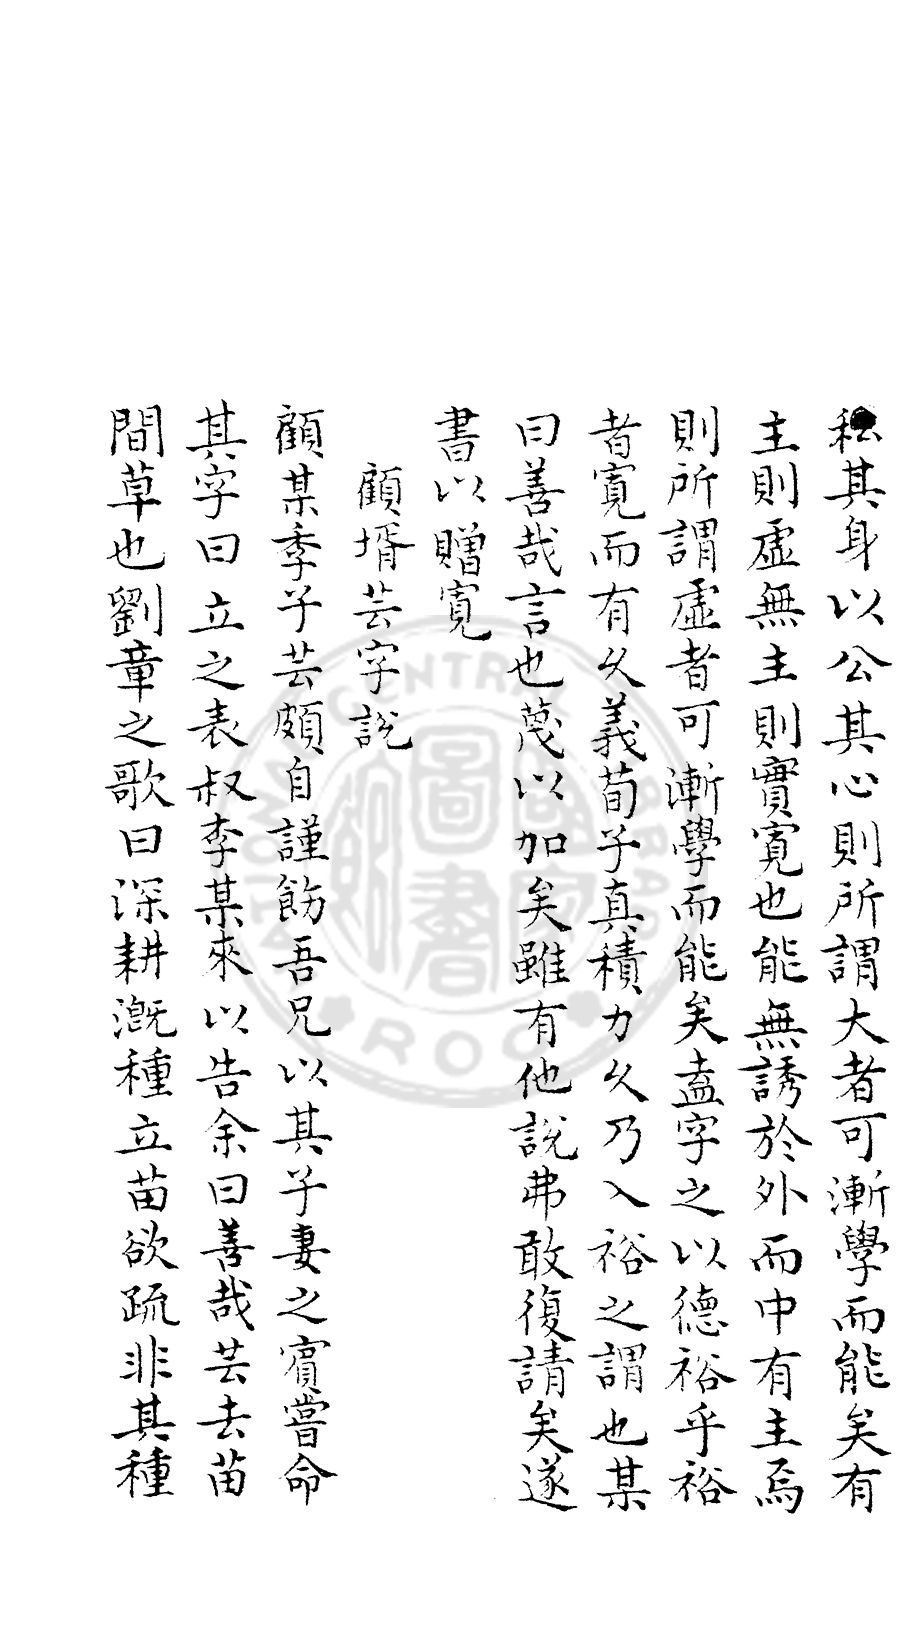 私其身以公其心則所謂大者可漸學而能矣有
主則虛無主則實寛也能無誘於外而中有主焉
則所謂虛者可漸學而能矣盍字之以德裕乎裕
者寛而有久義荀子真積力久乃入裕之謂也某
曰善哉言也蔑以加矣雖有他說弗敢復請矣遂
書以贈寛
顧壻芸字說
顧某季子芸頗自謹飭吾兄以其子妻之賔嘗命
其字曰立之表叔李某來以告余曰善哉芸去苗
間草也劉章之歌曰深耕溉種立苗欲疏非其種
CENTRAL LIBRARY
ROC
NATIONAL
國家圖書館